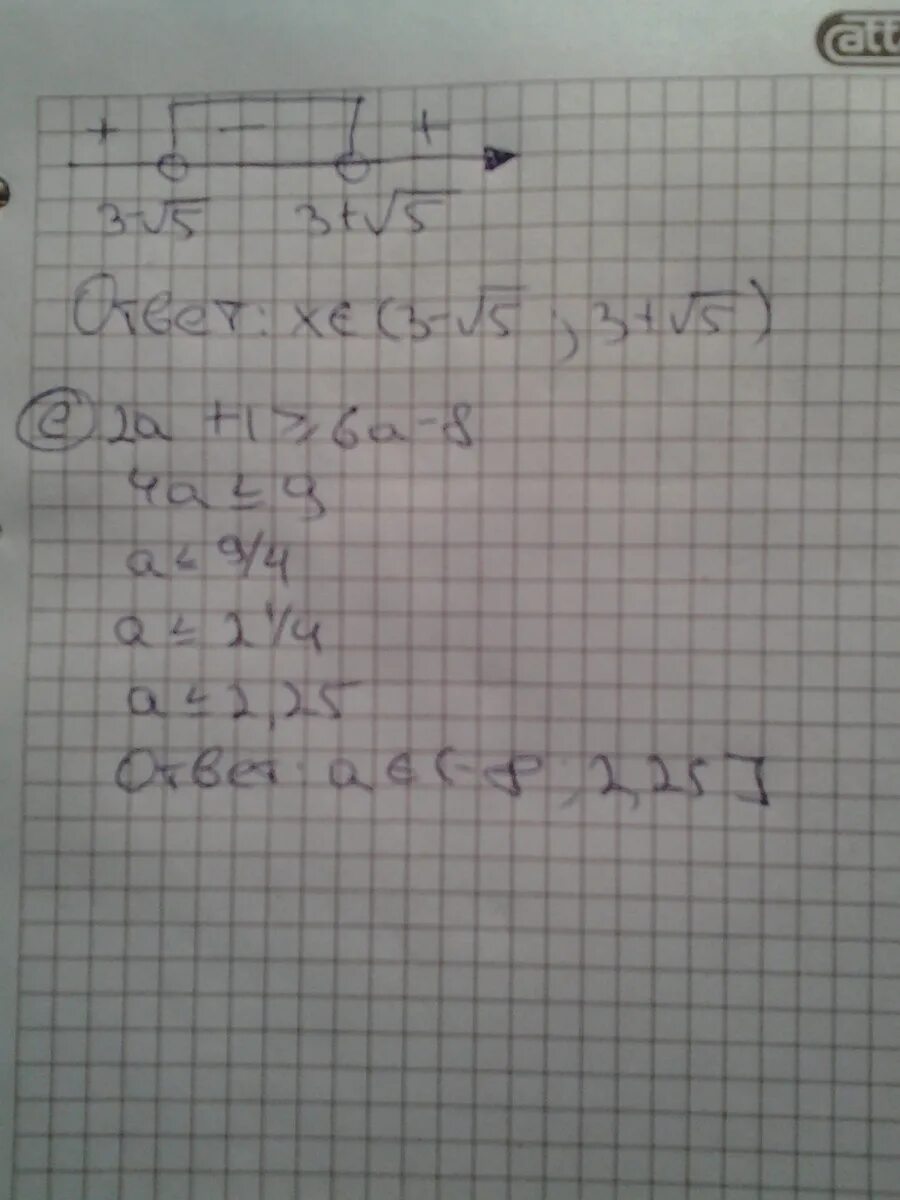 att
+ − +
3-√5 3+√5
Ответ: x∈(3-√5 ; 3+√5)
е 2a +1 ≥ 6a-8
4a ≤ 9
a ≤ 9/4
a ≤ 2 1/4
a ≤ 2,25
Ответ: a ∈ (-∞ ; 2,25]